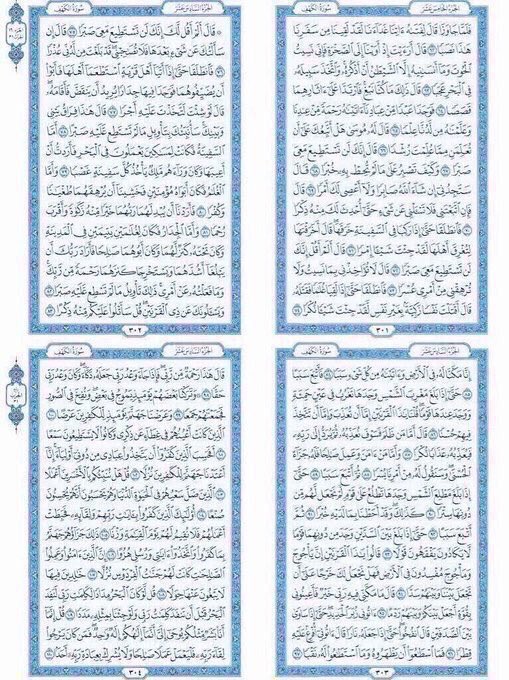 الجزء الخامس عشر سورة الكهف
فلما جاوزا قال لفتىه ءاتنا غداءنا لقد لقينا من سفرنا
هذا نصبا ٦٢ قال أرءيت إذ أوينا إلى الصخرة فإني نسيت
الحوت وما أنسىنيه إلا الشيطن أن أذكره واتخذ سبيله
في البحر عجبا ٦٣ قال ذلك ما كنا نبغ فارتدا على ءاثارهما
قصصا ٦٤ فوجدا عبدا من عبادنا ءاتينه رحمة من عندنا
وعلمنه من لدنا علما ٦٥ قال له موسى هل أتبعك على أن
تعلمن مما علمت رشدا ٦٦ قال إنك لن تستطيع معي
صبرا ٦٧ وكيف تصبر على ما لم تحط به خبرا ٦٨ قال
ستجدني إن شاء الله صابرا ولا أعصي لك أمرا ٦٩ قال
فإن اتبعتني فلا تسءلني عن شيء حتى أحدث لك منه ذكرا
٧٠ فانطلقا حتى إذا ركبا في السفينة خرقها قال أخرقتها
لتغرق أهلها لقد جئت شيءا إمرا ٧١ قال ألم أقل إنك
لن تستطيع معي صبرا ٧٢ قال لا تؤاخذني بما نسيت ولا
ترهقني من أمري عسرا ٧٣ فانطلقا حتى إذا لقيا غلما فقتله
قال أقتلت نفسا زكية بغير نفس لقد جئت شيءا نكرا ٧٤
٣٠١
الجزء السادس عشر سورة الكهف
قال ألم أقل لك إنك لن تستطيع معي صبرا ٧٥ قال إن
سألتك عن شيء بعدها فلا تصحبني قد بلغت من لدني عذرا
٧٦ فانطلقا حتى إذا أتيا أهل قرية استطعما أهلها فأبوا
أن يضيفوهما فوجدا فيها جدارا يريد أن ينقض فأقامه
قال لو شئت لتخذت عليه أجرا ٧٧ قال هذا فراق بيني
وبينك سأنبئك بتأويل ما لم تستطع عليه صبرا ٧٨ أما
السفينة فكانت لمسكين يعملون في البحر فأردت أن
أعيبها وكان وراءهم ملك يأخذ كل سفينة غصبا ٧٩ وأما
الغلم فكان أبواه مؤمنين فخشينا أن يرهقهما طغينا
وكفرا ٨٠ فأردنا أن يبدلهما ربهما خيرا منه زكوة وأقرب
رحما ٨١ وأما الجدار فكان لغلمين يتيمين في المدينة
وكان تحته كنز لهما وكان أبوهما صلحا فأراد ربك أن
يبلغا أشدهما ويستخرجا كنزهما رحمة من ربك
وما فعلته عن أمري ذلك تأويل ما لم تسطع عليه صبرا ٨٢
ويسءلونك عن ذي القرنين قل سأتلوا عليكم منه ذكرا ٨٣
٣٠٢
الجزء السادس عشر سورة الكهف
إنا مكنا له في الأرض وءاتينه من كل شيء سببا ٨٤ فأتبع سببا
٨٥ حتى إذا بلغ مغرب الشمس وجدها تغرب في عين حمئة
ووجد عندها قوما قلنا يذا القرنين إما أن تعذب وإما أن تتخذ
فيهم حسنا ٨٦ قال أما من ظلم فسوف نعذبه ثم يرد إلى ربه
فيعذبه عذابا نكرا ٨٧ وأما من ءامن وعمل صلحا فله جزاء
الحسنى وسنقول له من أمرنا يسرا ٨٨ ثم أتبع سببا ٨٩
حتى إذا بلغ مطلع الشمس وجدها تطلع على قوم لم نجعل لهم من
دونها سترا ٩٠ كذلك وقد أحطنا بما لديه خبرا ٩١ ثم
أتبع سببا ٩٢ حتى إذا بلغ بين السدين وجد من دونهما قوما
لا يكادون يفقهون قولا ٩٣ قالوا يذا القرنين إن يأجوج
ومأجوج مفسدون في الأرض فهل نجعل لك خرجا على أن
تجعل بيننا وبينهم سدا ٩٤ قال ما مكني فيه ربي خير فأعينوني
بقوة أجعل بينكم وبينهم ردما ٩٥ ءاتوني زبر الحديد حتى إذا ساوى
بين الصدفين قال انفخوا حتى إذا جعله نارا قال ءاتوني أفرغ عليه
قطرا ٩٦ فما اسطعوا أن يظهروه وما استطعوا له نقبا ٩٧
٣٠٣
الجزء السادس عشر سورة الكهف
قال هذا رحمة من ربي فإذا جاء وعد ربي جعله دكاء وكان وعد ربي
حقا ٩٨ وتركنا بعضهم يومئذ يموج في بعض ونفخ في الصور
فجمعنهم جمعا ٩٩ وعرضنا جهنم يومئذ للكفرين عرضا ١٠٠
الذين كانت أعينهم في غطاء عن ذكري وكانوا لا يستطيعون سمعا
١٠١ أفحسب الذين كفروا أن يتخذوا عبادي من دوني أولياء إنا
أعتدنا جهنم للكفرين نزلا ١٠٢ قل هل ننبئكم بالأخسرين أعملا
١٠٣ الذين ضل سعيهم في الحيوة الدنيا وهم يحسبون أنهم يحسنون
صنعا ١٠٤ أولئك الذين كفروا بءايت ربهم ولقائه فحبطت
أعملهم فلا نقيم لهم يوم القيمة وزنا ١٠٥ ذلك جزاؤهم جهنم
بما كفروا واتخذوا ءايتي ورسلي هزوا ١٠٦ إن الذين ءامنوا وعملوا
الصلحت كانت لهم جنت الفردوس نزلا ١٠٧ خلدين فيها
لا يبغون عنها حولا ١٠٨ قل لو كان البحر مدادا لكلمت ربي لنفد
البحر قبل أن تنفد كلمت ربي ولو جئنا بمثله مددا ١٠٩ قل إنما
أنا بشر مثلكم يوحى إلي أنما إلهكم إله وحد فمن كان يرجوا
لقاء ربه فليعمل عملا صلحا ولا يشرك بعبادة ربه أحدا ١١٠
٣٠٤